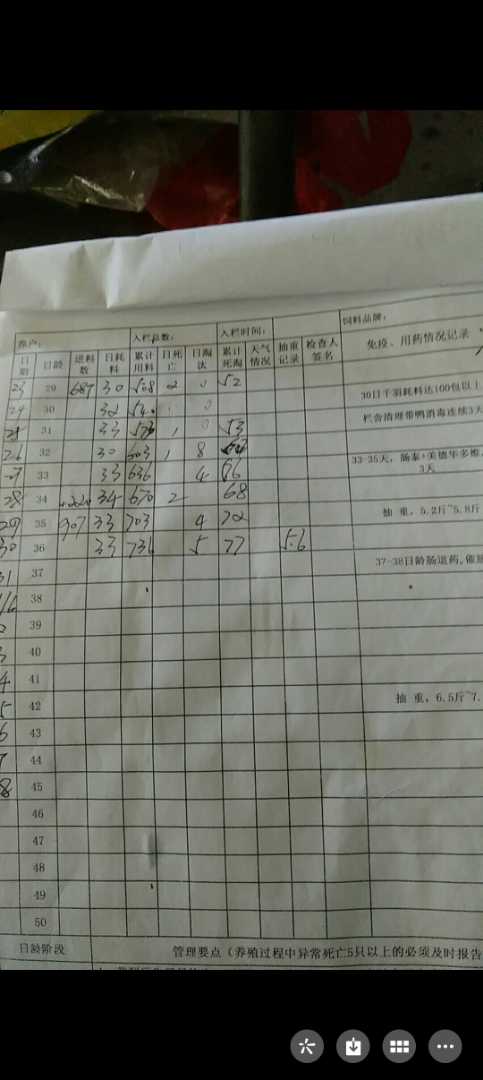 养户： 入栏总数： 入栏时间： 饲料品牌：
日期 日龄 进料数 日耗料 累计用料 日死亡 日淘汰 累计死淘 天气情况 抽重记录 检查人签名 免疫、用药情况记录
23 29 687 30 508 2 0 52
24 30 32 540 1 0 30日千羽耗料达100包以上
31 33 573 1 0 53 栏舍清理带鸭消毒连续3天
26 32 30 603 1 8
33 33 636 4 66 33-35天，肠泰+美德华多维，3天
28 34 34 670 2 68
29 35 907 33 703 4 72 抽 重，5.2斤~5.8斤
30 36 33 736 5 77 5.6
31 37 37-38日龄肠道药，催
38
39
40
4 41
5 42 抽 重，6.5斤~7.
6 43
7 44
8 45
46
47
48
49
50
日龄阶段 管理要点（养殖过程中异常死亡5只以上的必须及时报告